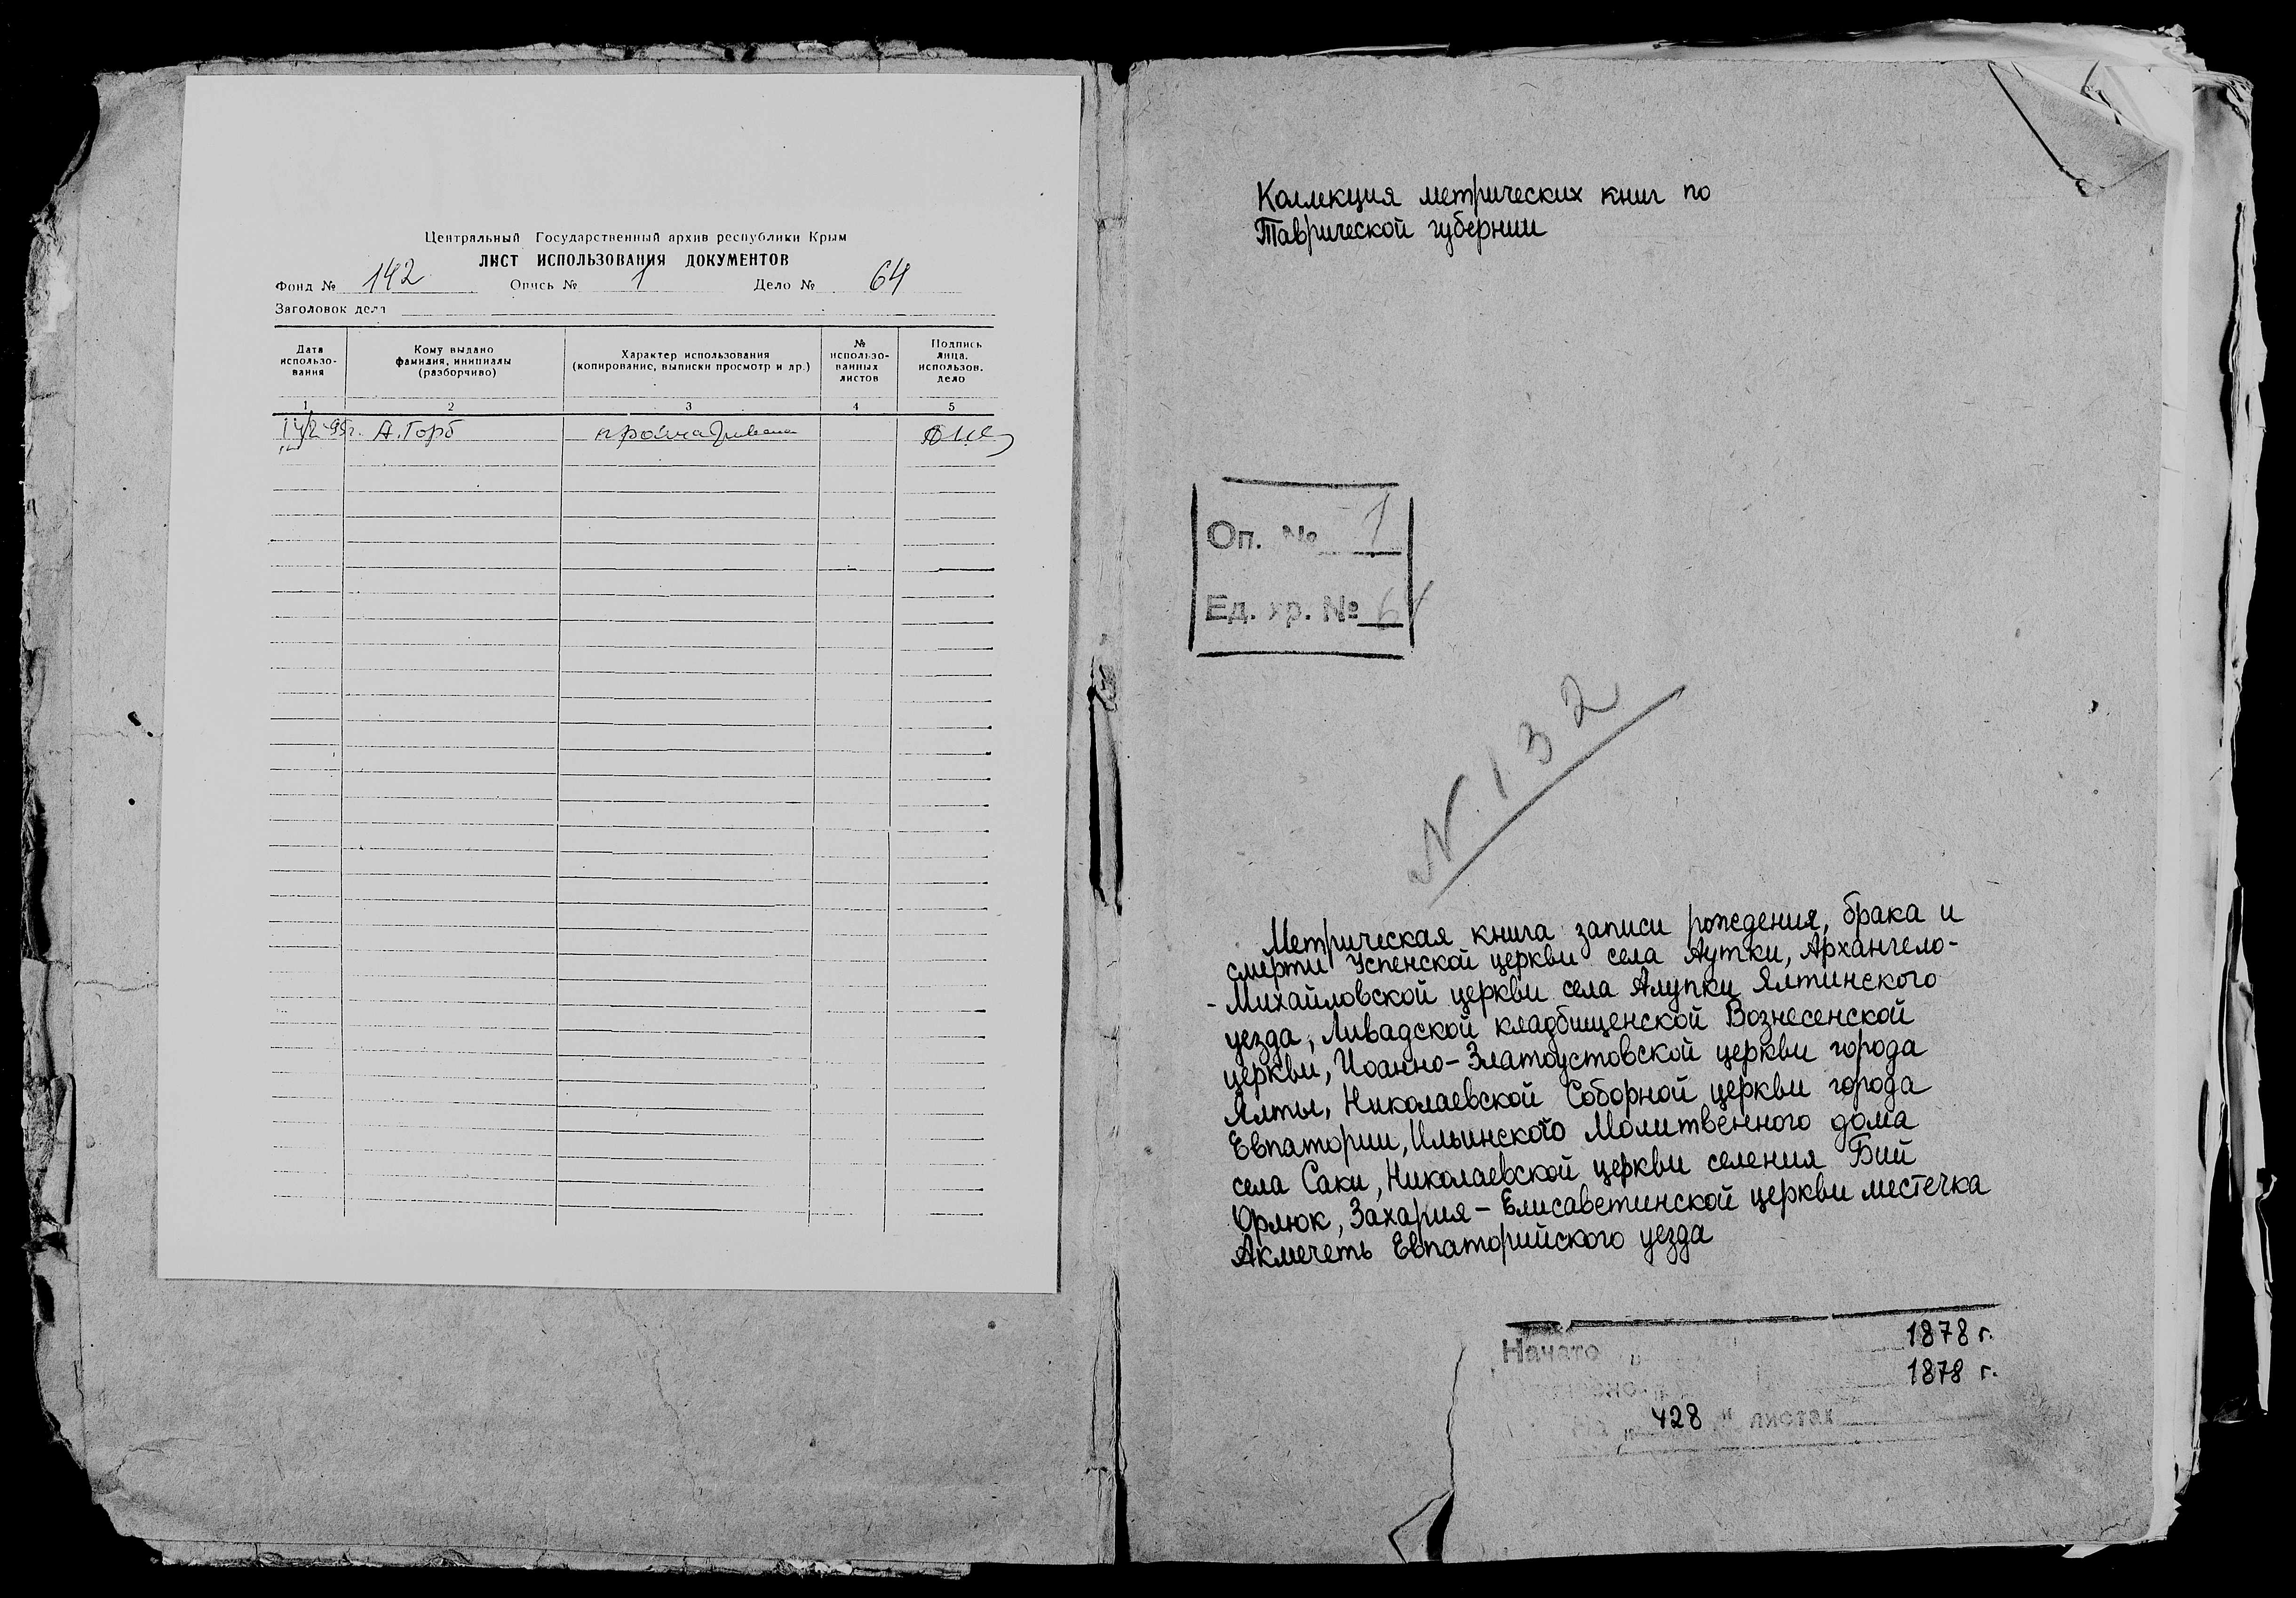 Центральный Государственный архив республики Крым
ЛИСТ ИСПОЛЬЗОВАНИЯ ДОКУМЕНТОВ
Фонд № 142 Опись № 1 Дело № 64
Заголовок дела
Дата использо-вания
Кому выдано фамилия, инициалы (разборчиво)
Характер использования (копирование, выписки просмотр и др.)
№ использо-ванных листов
Подпись лица, использов. дело
1 2 3 4 5
А. Горб
Коллекция метрических книг по
Таврической губернии
Оп. № 1
Ед. хр. № 64
N 132
Метрическая книга записи рождения, брака и
смерти Успенской церкви села Аутки, Архангело-
-Михайловской церкви села Алупки Ялтинского
уезда, Ливадской кладбищенской Вознесенской
церкви, Иоанно-Златоустовской церкви города
Ялты, Николаевской Соборной церкви города
Евпатории, Ильинского Молитвенного дома
села Саки, Николаевской церкви селения Бий
Орлюк, Захария-Елисаветинской церкви местечка
Акмечеть Евпаторийского уезда
Начато 1878 г.
1878 г.
На „428" листах